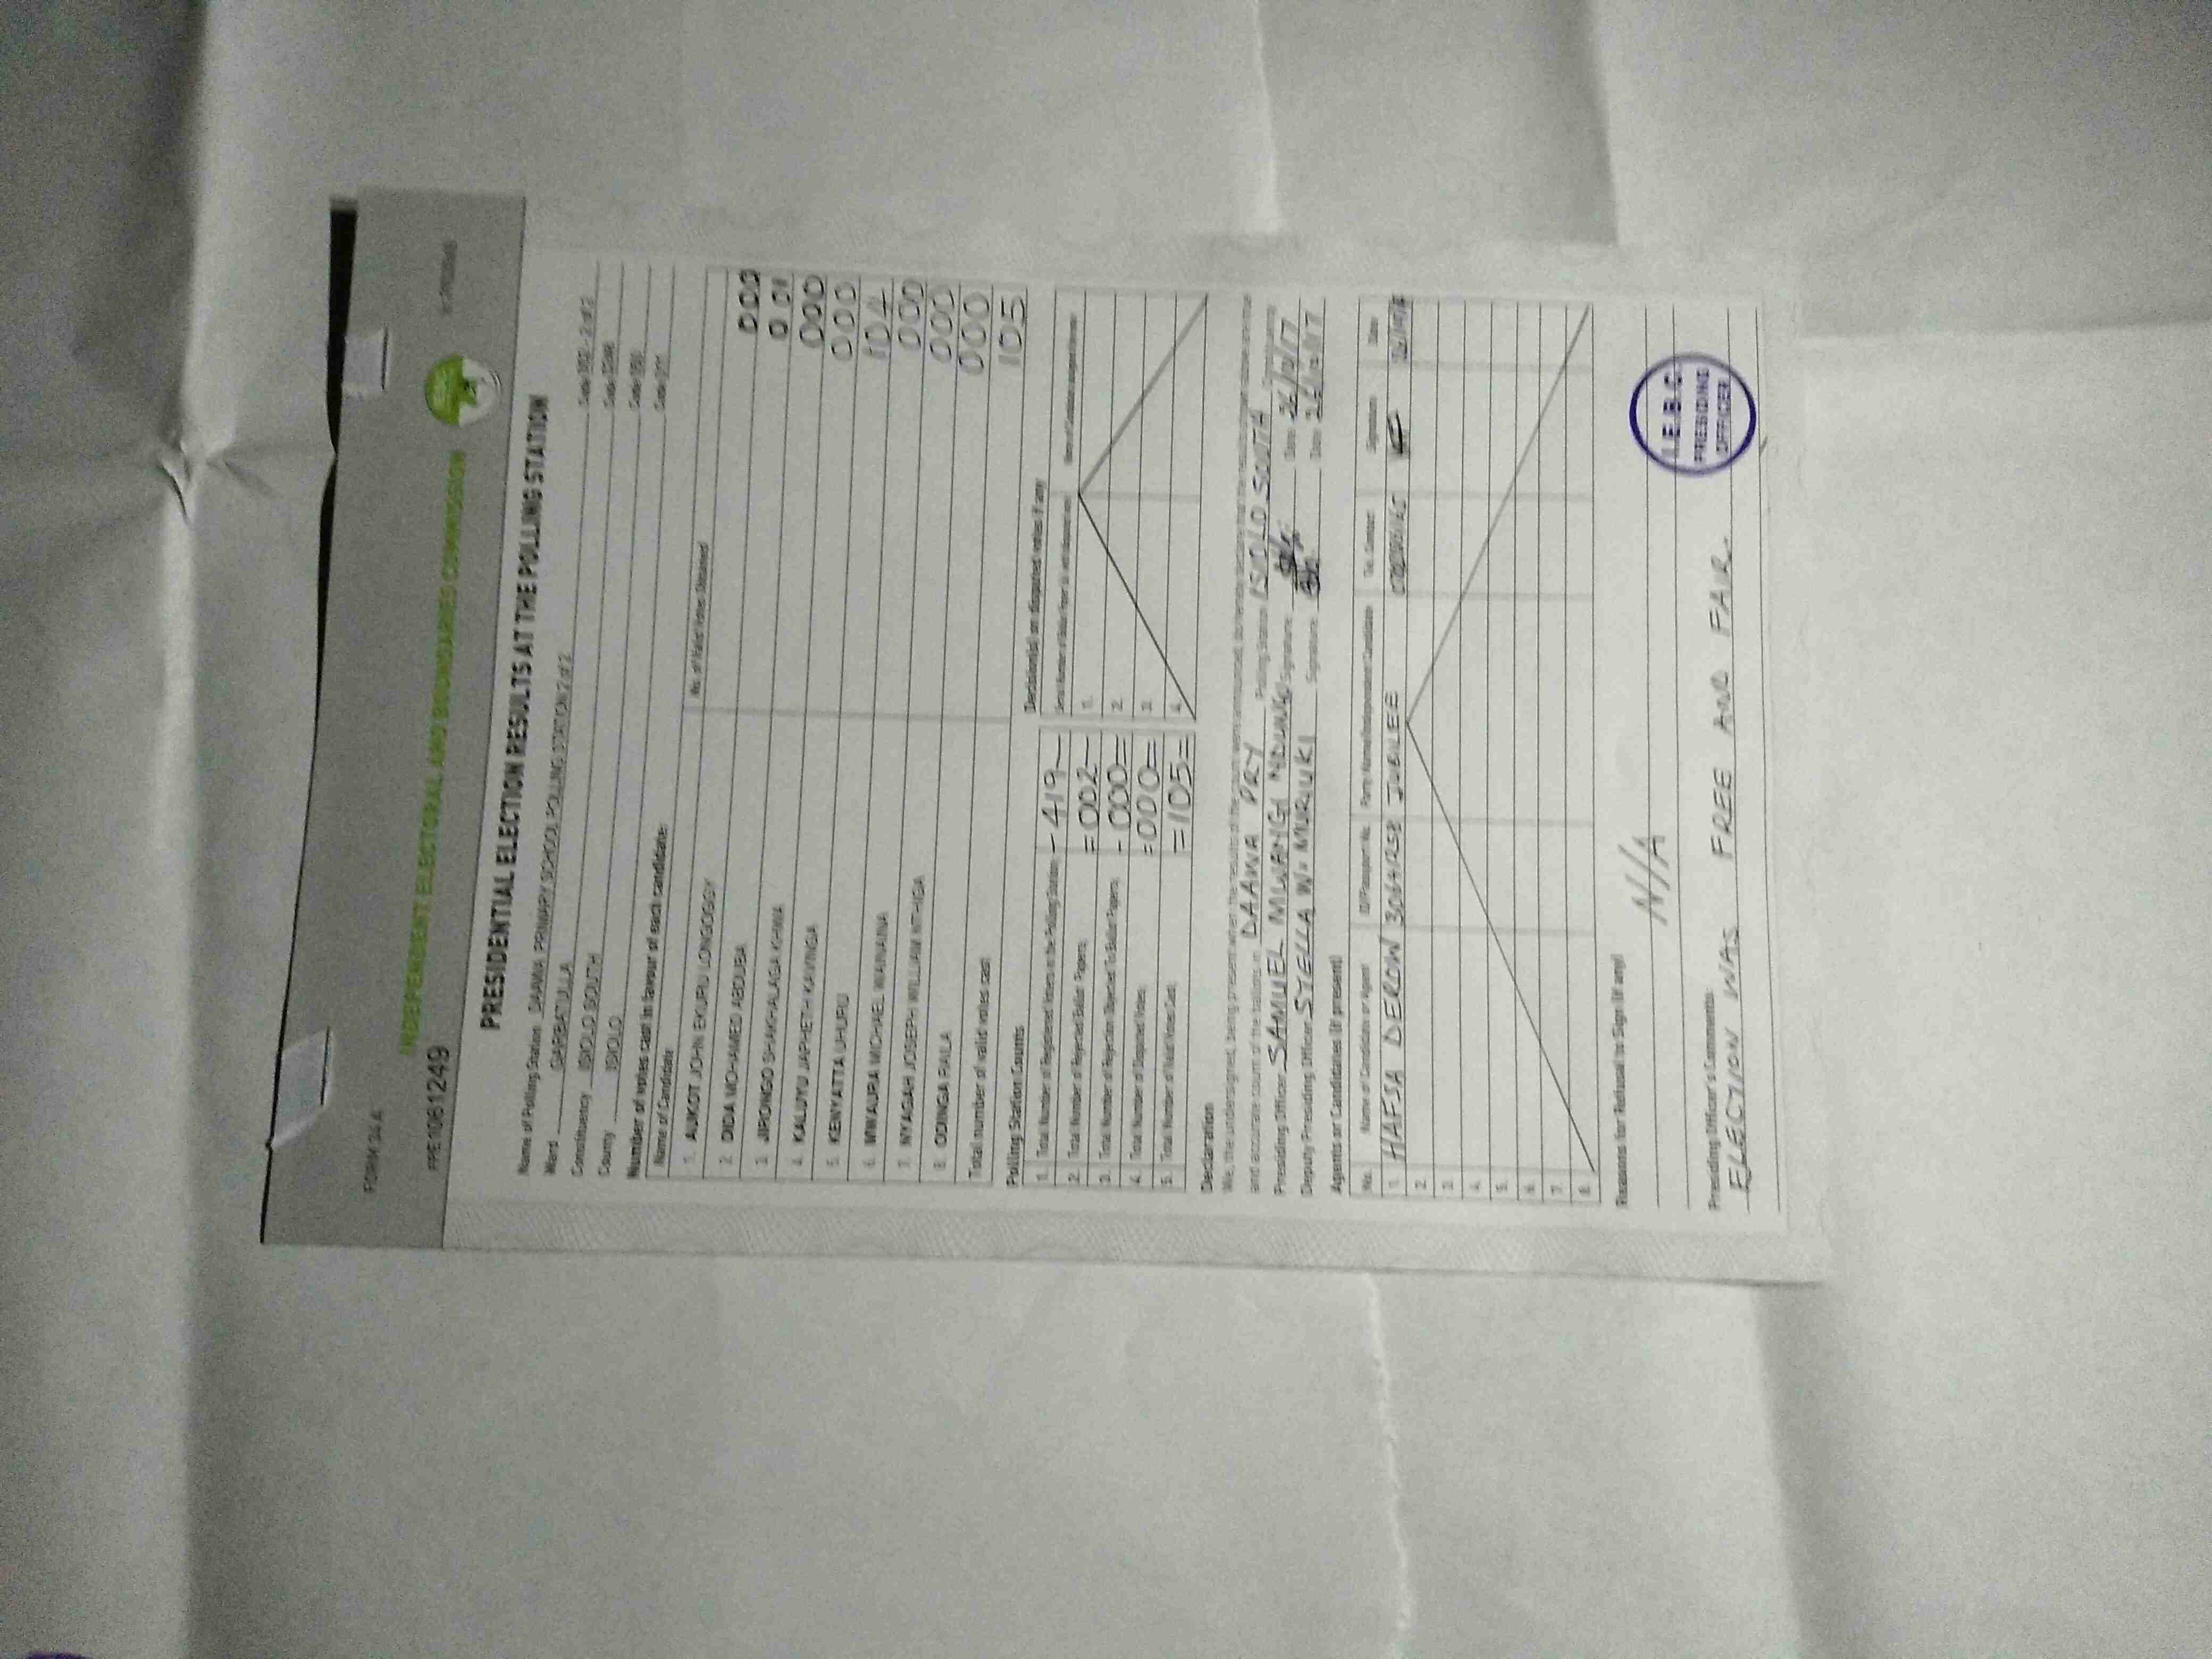 FORM 34 A
PRE10612​49
INDEPENDENT ELECTORAL AND BOUNDARIES COMMISSION
PRESIDENTIAL ELECTION RESULTS AT THE POLLING STATION
Name of Polling Station DAAWA PRIMARY SCHOOL POLLING STATION 2 of 2 Code 2 of 2
Ward GARBATULLA Code
Constituency ISIOLO SOUTH Code
County ISIOLO Code
Number of votes cast in favour of each candidate:
Name of Candidate No. of Valid Votes Obtained
1. AUKOT JOHN EKURU LONGOGGY 000
2. DIDA MOHAMED ABDUBA 001
3. JIRONGO SHAKHALAGA KHWA 000
4. KALUYU JAPHETH KAVINGA 000
5. KENYATTA UHURU 104
6. MWAURA MICHAEL WAINAINA 000
7. NYAGAH JOSEPH WILLIAM NTHIGA 000
8. ODINGA RAILA 000
Total number of valid votes cast 105
Polling Station Counts
1. Total Number of Registered Voters in the Polling Station - 419 -
2. Total Number of Rejected Ballot Papers = 002 -
3. Total Number of Rejection Objected To Ballot Papers - 000 =
4. Total Number of Disputed Votes = 000 =
5. Total Number of Valid Votes Cast = 105 =
Decision(s) on disputed votes if any
1.
2.
3.
4.
Declaration
We, the undersigned, being present when the results of the
and accurate count of the ballots in DAAWA PRY Polling Station ISIOLO SOUTH
Presiding Officer SAMUEL MWANGI NDUNGU Signature Date 26/10/17
Deputy Presiding Officer STELLA W. MURIUKI Signature Date 26/10/17
Agents or Candidates (if present)
No. Name of Candidate or Agent ID/Passport No. Party Name/Independent Candidate Tel. Contact Signature Date
1. HAFSA DEROW JUBILEE
2.
3.
4.
5.
6.
7.
8.
Reasons for Refusal to Sign (if any)
N/A
Presiding Officer's Comments:
ELECTION WAS FREE AND FAIR.
I.E.B.C.
PRESIDING
OFFICER